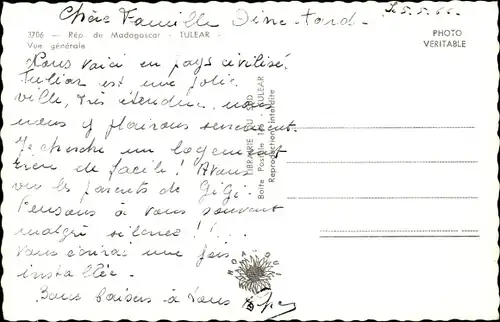 Chère Famille Dine-Tard-
Le 5.5.66.
3706 — Rép. de Madagascar - TULEAR -
Vue générale
PHOTO
VERITABLE
Nous voici en pays civilisé.
Tuléar est une jolie
ville, très étendue, nous
nous y plaisons
Je cherche un logement
rien de facile ! Avons
vu les parents de GiGi.
Pensons à vous souvent
malgré silence !! ...
Vous écrirai une fois
installée.
Bons baisers à tous
LIBRAIRIE DU SUD
Boite Postale - TULEAR
Reproduction interdite